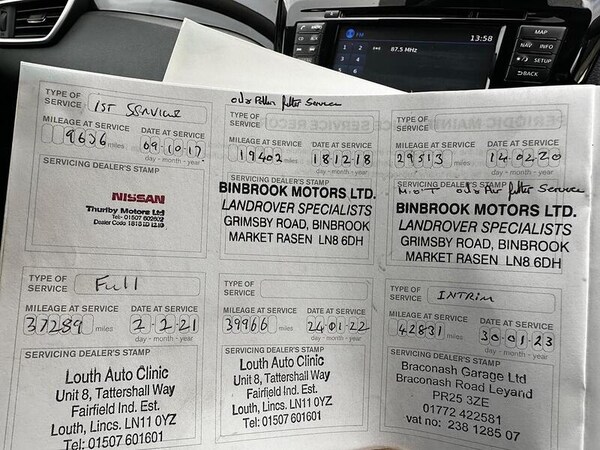 FM
1 2
3 4
5 6
87.5 MHz
13:58
MAP
NAV INFO
SETUP
BACK
TYPE OF
SERVICE
1ST SERVICE
MILEAGE AT SERVICE DATE AT SERVICE
9636 miles 09-10-17
day - month - year
SERVICING DEALER'S STAMP
NISSAN
Thurlby Motors Ltd
Tel:- 01507 602502
TYPE OF
SERVICE
Pollen filter Service
MILEAGE AT SERVICE DATE AT SERVICE
19402 miles 18-12-18
day - month - year
SERVICING DEALER'S STAMP
BINBROOK MOTORS LTD.
LANDROVER SPECIALISTS
GRIMSBY ROAD, BINBROOK
MARKET RASEN LN8 6DH
TYPE OF
SERVICE
MILEAGE AT SERVICE DATE AT SERVICE
29513 miles 14-02-20
day - month - year
SERVICING DEALER'S STAMP
M.O.T filter Service
BINBROOK MOTORS LTD.
LANDROVER SPECIALISTS
GRIMSBY ROAD, BINBROOK
MARKET RASEN LN8 6DH
TYPE OF
SERVICE
Full
MILEAGE AT SERVICE DATE AT SERVICE
37289 miles 2-1-21
day - month - year
SERVICING DEALER'S STAMP
Louth Auto Clinic
Unit 8, Tattershall Way
Fairfield Ind. Est.
Louth, Lincs. LN11 0YZ
Tel: 01507 601601
TYPE OF
SERVICE
MILEAGE AT SERVICE DATE AT SERVICE
39966 miles 24-01-22
day - month - year
SERVICING DEALER'S STAMP
Louth Auto Clinic
Unit 8, Tattershall Way
Fairfield Ind. Est.
Louth, Lincs. LN11 0YZ
Tel: 01507 601601
TYPE OF
SERVICE
INTRIM
MILEAGE AT SERVICE DATE AT SERVICE
42831 miles 30-01-23
day - month - year
SERVICING DEALER'S STAMP
Braconash Garage Ltd
Braconash Road Leyland
PR25 3ZE
01772 422581
vat no: 238 1285 07